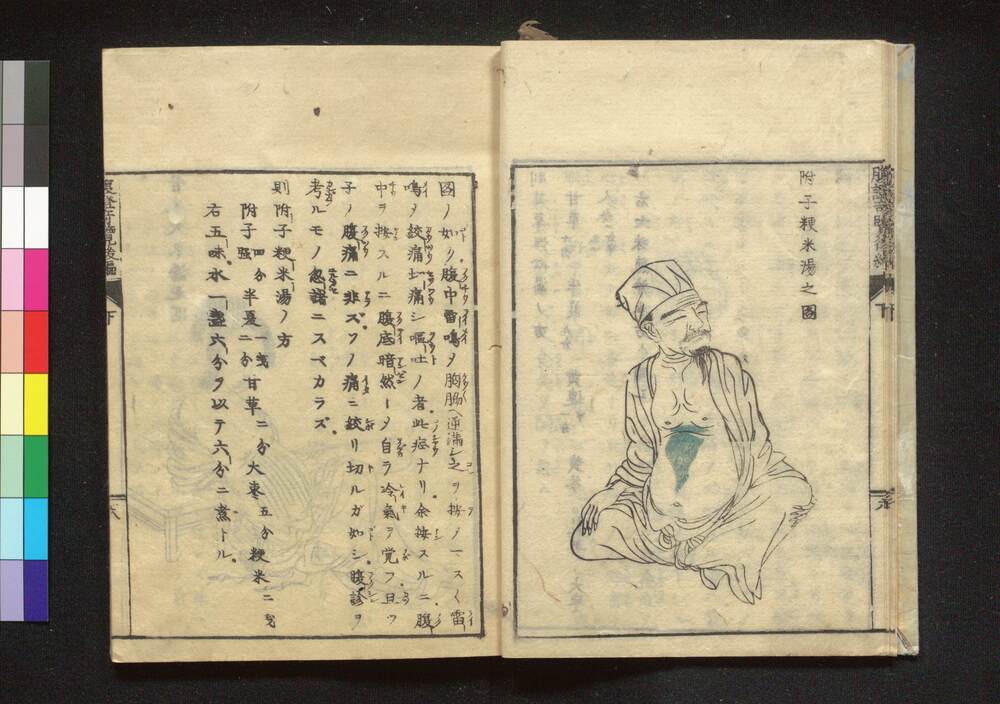 附子粳米湯之図
図ノ如ク腹中雷鳴ヲ胸脇ヘ逆満シ之ヲ按ノマス〱雷
鳴ヲ絞痛シ痛シ嘔吐ノ者此症ナリ余按スルニ腹
中ヲ按スルニ腹底暗然ータ自ラ冷氣ヲ覚フ且ツ
子ノ腹痛ニ非ズソノ痛ニ絞リ切ルガ如シ腹診ヲ
考ルモノ忽諸ニスベカラズ
則附子粳米湯ノ方
附子 四分 半夏 一戔二分 甘草 二分 大棗 五分 粳米 二戔
右五味水一盞六分ヲ以テ六分ニ煮トル